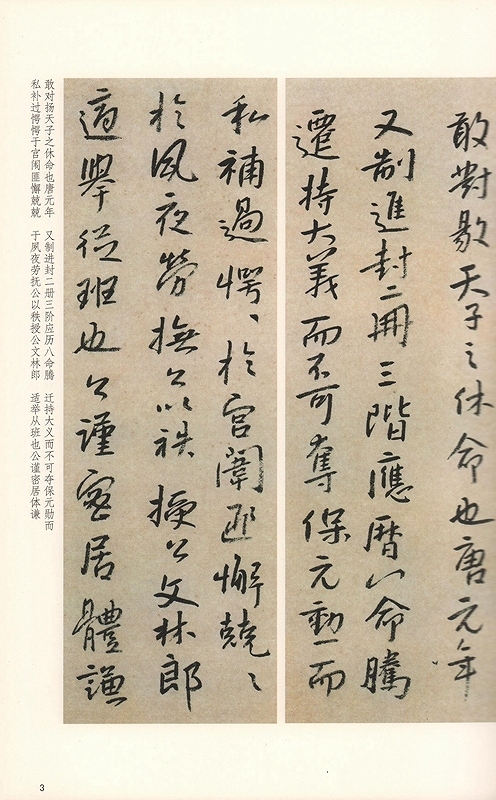 敢對敭天子之休命也唐元年
又制進封二冊三階應曆八命騰
遷持大義而不可奪保元勳而
私補過愕〻於宮闈匪懈兢〻
於夙夜勞撫公以秩授公文林郎
適舉從班也公謹密居體謙
敢对扬天子之休命也唐元年 又制进封二册三阶应历八命腾 迁持大义而不可夺保元勋而
私补过愕愕于宫闱匪懈兢兢 于夙夜劳抚公以秩授公文林郎 适举从班也公谨密居体谦
3